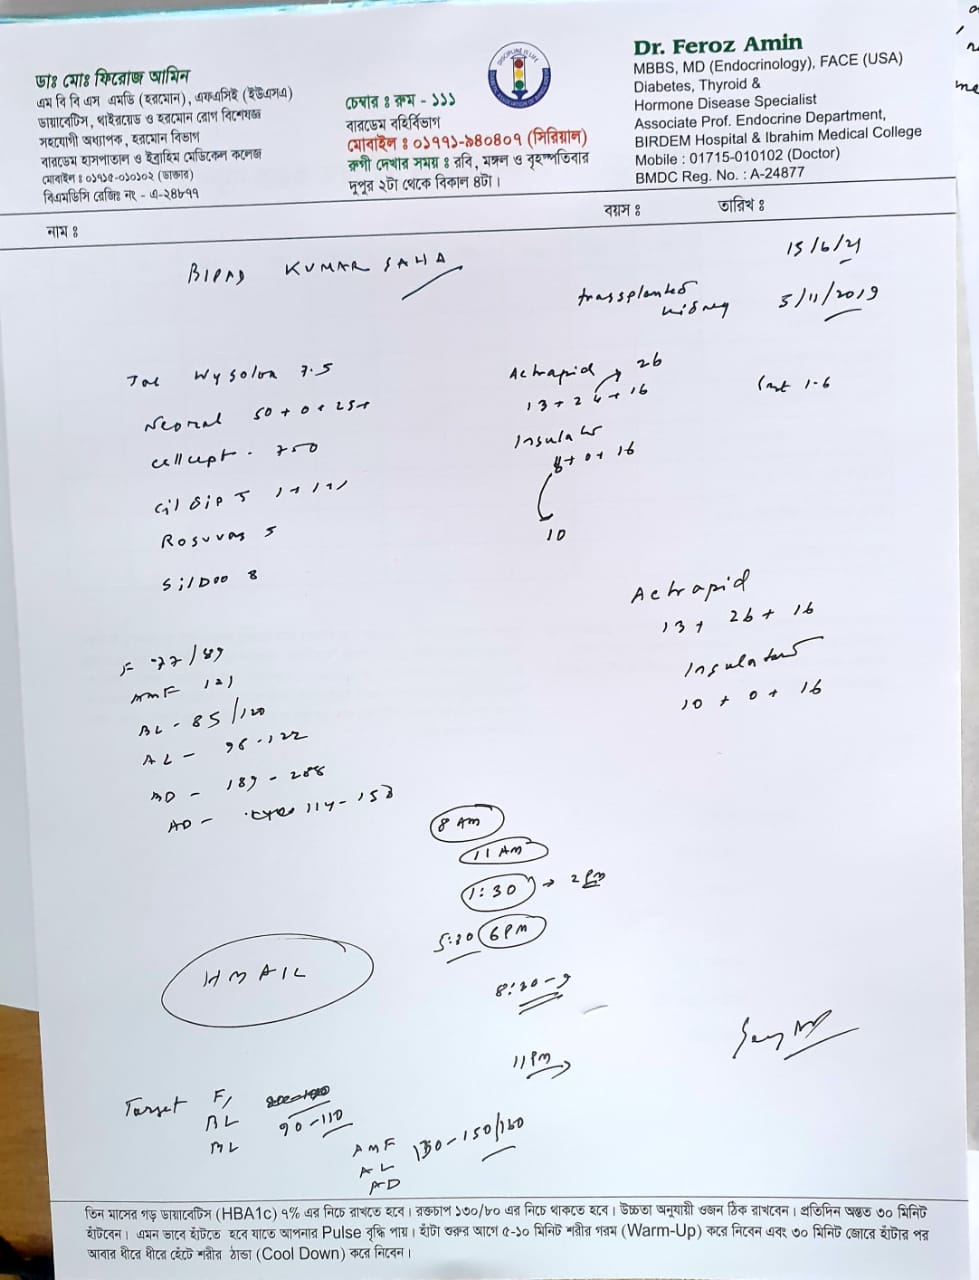 ডাঃ মোঃ ফিরোজ আমিন
এম বি বি এস এমডি (হরমোন), এফএসিই (ইউএসএ)
ডায়াবেটিস, থাইরয়েড ও হরমোন রোগ বিশেষজ্ঞ
সহযোগী অধ্যাপক, হরমোন বিভাগ
বারডেম হাসপাতাল ও ইব্রাহিম মেডিকেল কলেজ
মোবাইল : ০১৭১৫-০১০১০২ (ডাক্তার)
বিএমডিসি রেজিঃ নং - এ-২৪৮৭৭
চেম্বার : রুম - ১১১
বারডেম বহির্বিভাগ
মোবাইল : ০১৭৭১-৯৪০৪০৭ (সিরিয়াল)
রুগী দেখার সময় : রবি, মঙ্গল ও বৃহস্পতিবার
দুপুর ২টা থেকে বিকাল ৪টা।
DISCIPLINE IS LIFE
Dr. Feroz Amin
MBBS, MD (Endocrinology), FACE (USA)
Diabetes, Thyroid &
Hormone Disease Specialist
Associate Prof. Endocrine Department,
BIRDEM Hospital & Ibrahim Medical College
Mobile : 01715-010102 (Doctor)
BMDC Reg. No. : A-24877
নাম : বয়স : তারিখ :
BIPAD KUMAR SAHA
15/6/21
transplanted kidney 5/11/2019
Wysolon 7.5
Neoral 50 + 0 + 25
cellcept - 750
Rosuvas 5
Actrapid 26
13 + 24 + 16
Insulatard
8 + 0 + 16
10
1-6
Actrapid
13 + 26 + 16
Insulatard
10 + 0 + 16
F 77/89
AMF 121
BL - 85/120
AL - 96-122
BD - 189 - 288
AD - 114-153
8 AM
11 AM
1:30 → 2 PM
5:30 6 PM
8:30-9
11 PM
Target F,
BL 90-110
BL
AMF 130-150/160
AL
AD
তিন মাসের গড় ডায়াবেটিস (HBA1c) ৭% এর নিচে রাখতে হবে। রক্তচাপ ১৩০/৮০ এর নিচে থাকতে হবে। উচ্চতা অনুযায়ী ওজন ঠিক রাখবেন। প্রতিদিন অন্তত ৩০ মিনিট
হাঁটবেন। এমন ভাবে হাঁটতে হবে যাতে আপনার Pulse বৃদ্ধি পায়। হাঁটা শুরুর আগে ৫-১০ মিনিট শরীর গরম (Warm-Up) করে নিবেন এবং ৩০ মিনিট জোরে হাঁটার পর
আবার ধীরে ধীরে হেঁটে শরীর ঠান্ডা (Cool Down) করে নিবেন।